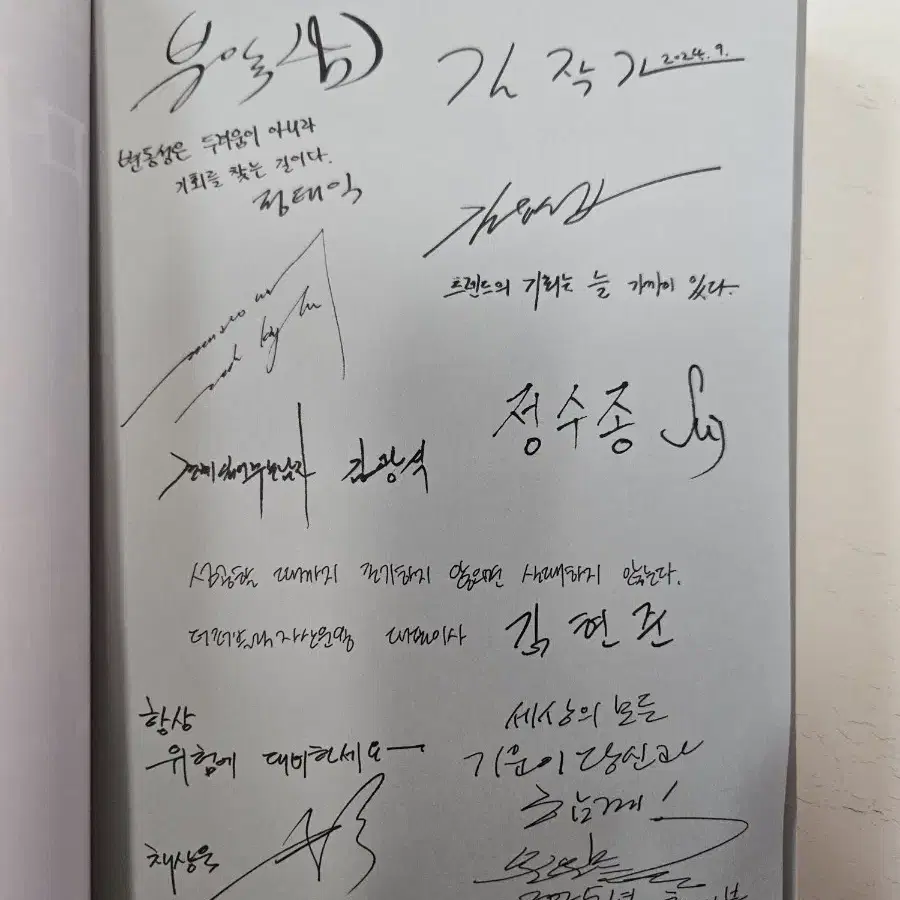 부읽(남)
김 작가 2024. 9.
변동성은 두려움이 아니라
기회를 찾는 길이다.
정태익
트렌드의 기회는 늘 가까이 있다.
경제읽어주는남자 김광석
정수종
성공할 때까지 포기하지 않으면 실패하지 않는다.
더퍼블릭자산운용 대표이사 김현준
항상
위험에 대비하세요
채상욱
세상의 모든
기운이 당신과
함께!